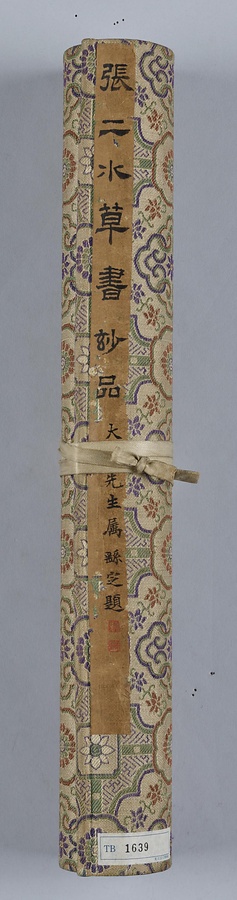 張二水草書妙品
大
先生属
題
TB 1639